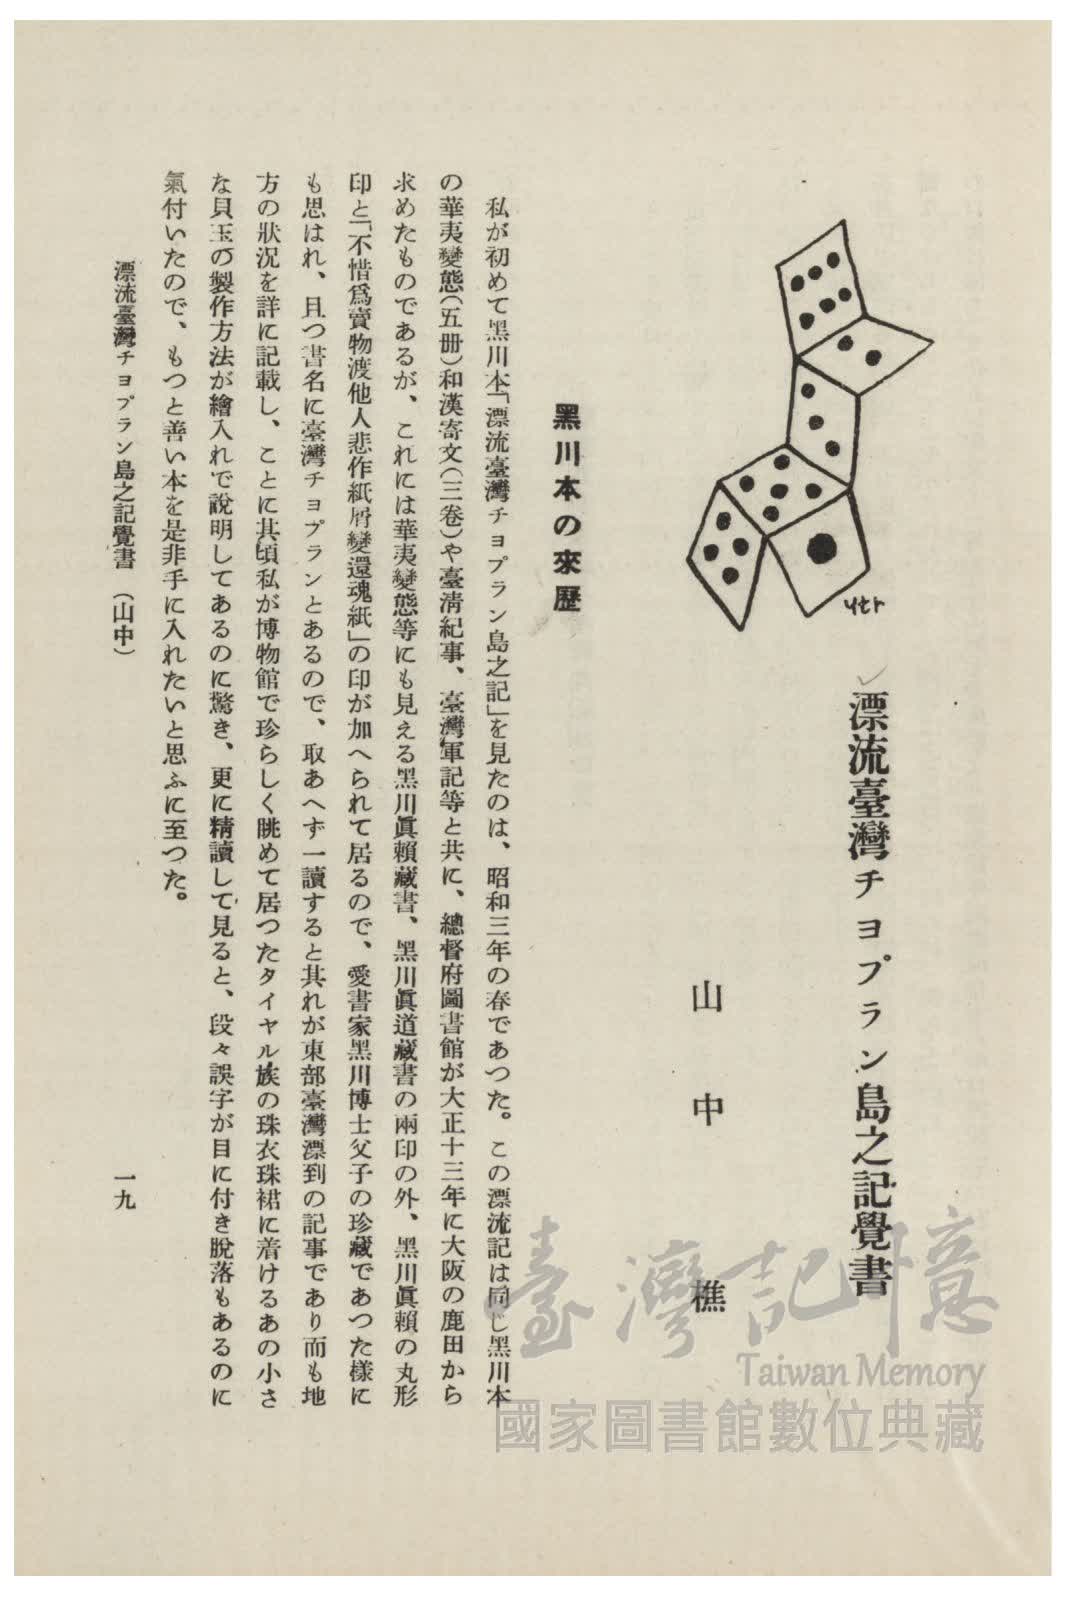 漂流臺灣チヨプラン島之記覺書
山中樵
黑川本の來歷
私が初めて黑川本「漂流臺灣チヨプラン島之記」を見たのは、昭和三年の春であつた。この漂流記は同じ黑川本
の華夷變態(五册)和漢寄文(三卷)や臺淸紀事、臺灣軍記等と共に、總督府圖書館が大正十三年に大阪の鹿田から
求めたものであるが、これには華夷變態等にも見える黑川眞賴藏書、黑川眞道藏書の兩印の外、黑川眞賴の丸形
印と「不惜爲賣物渡他人悲作紙屑變還魂紙」の印が加へられて居るので、愛書家黑川博士父子の珍藏であつた樣に
も思はれ、且つ書名に臺灣チヨプランとあるので、取あへず一讀すると其れが東部臺灣漂到の記事であり而も地
方の狀況を詳に記載し、ことに其頃私が博物館で珍らしく眺めて居つたタイヤル族の珠衣珠裙に着けるあの小さ
な貝玉の製作方法が繪入れで說明してあるのに驚き、更に精讀して見ると、段々誤字が目に付き脫落もあるのに
氣付いたので、もつと善い本を是非手に入れたいと思ふに至つた。
漂流臺灣チヨプラン島之記覺書(山中)
一九
ytr
臺灣記憶
Taiwan Memory
國家圖書館數位典藏